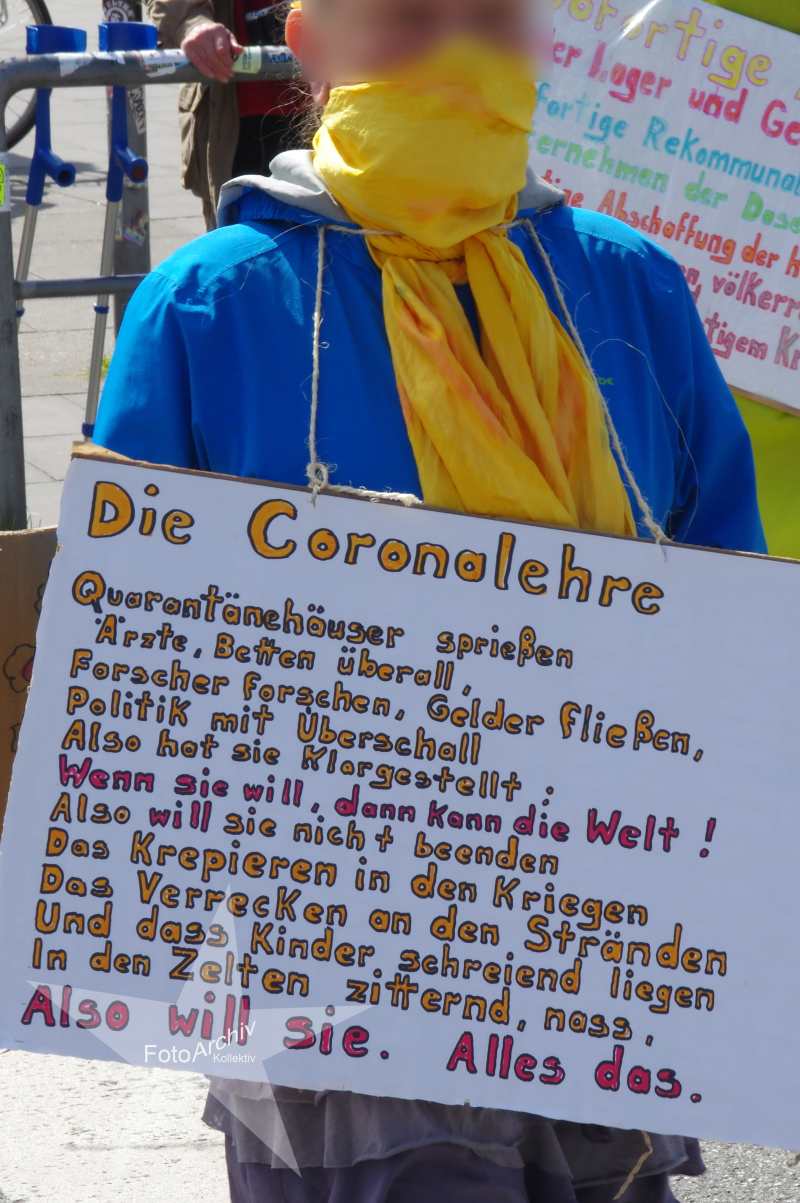 ofortige
er Lager und Ge
fortige Rekommunal
ternehmen der Dase
tige Abschaffung der h
völkerr
tigem Kr
Die Coronalehre
Quarantänehäuser sprießen
Ärzte, Betten überall,
Forscher forschen, Gelder fließen,
Politik mit Überschall
Also hat sie Klargestellt:
Wenn sie will, dann kann die Welt!
Also will sie nicht beenden
Das Krepieren in den Kriegen
Das Verrecken an den Stränden
Und dass Kinder schreiend liegen
In den Zelten zitternd, nass,
Also will sie. Alles das.
FotoArchiv
Kollektiv